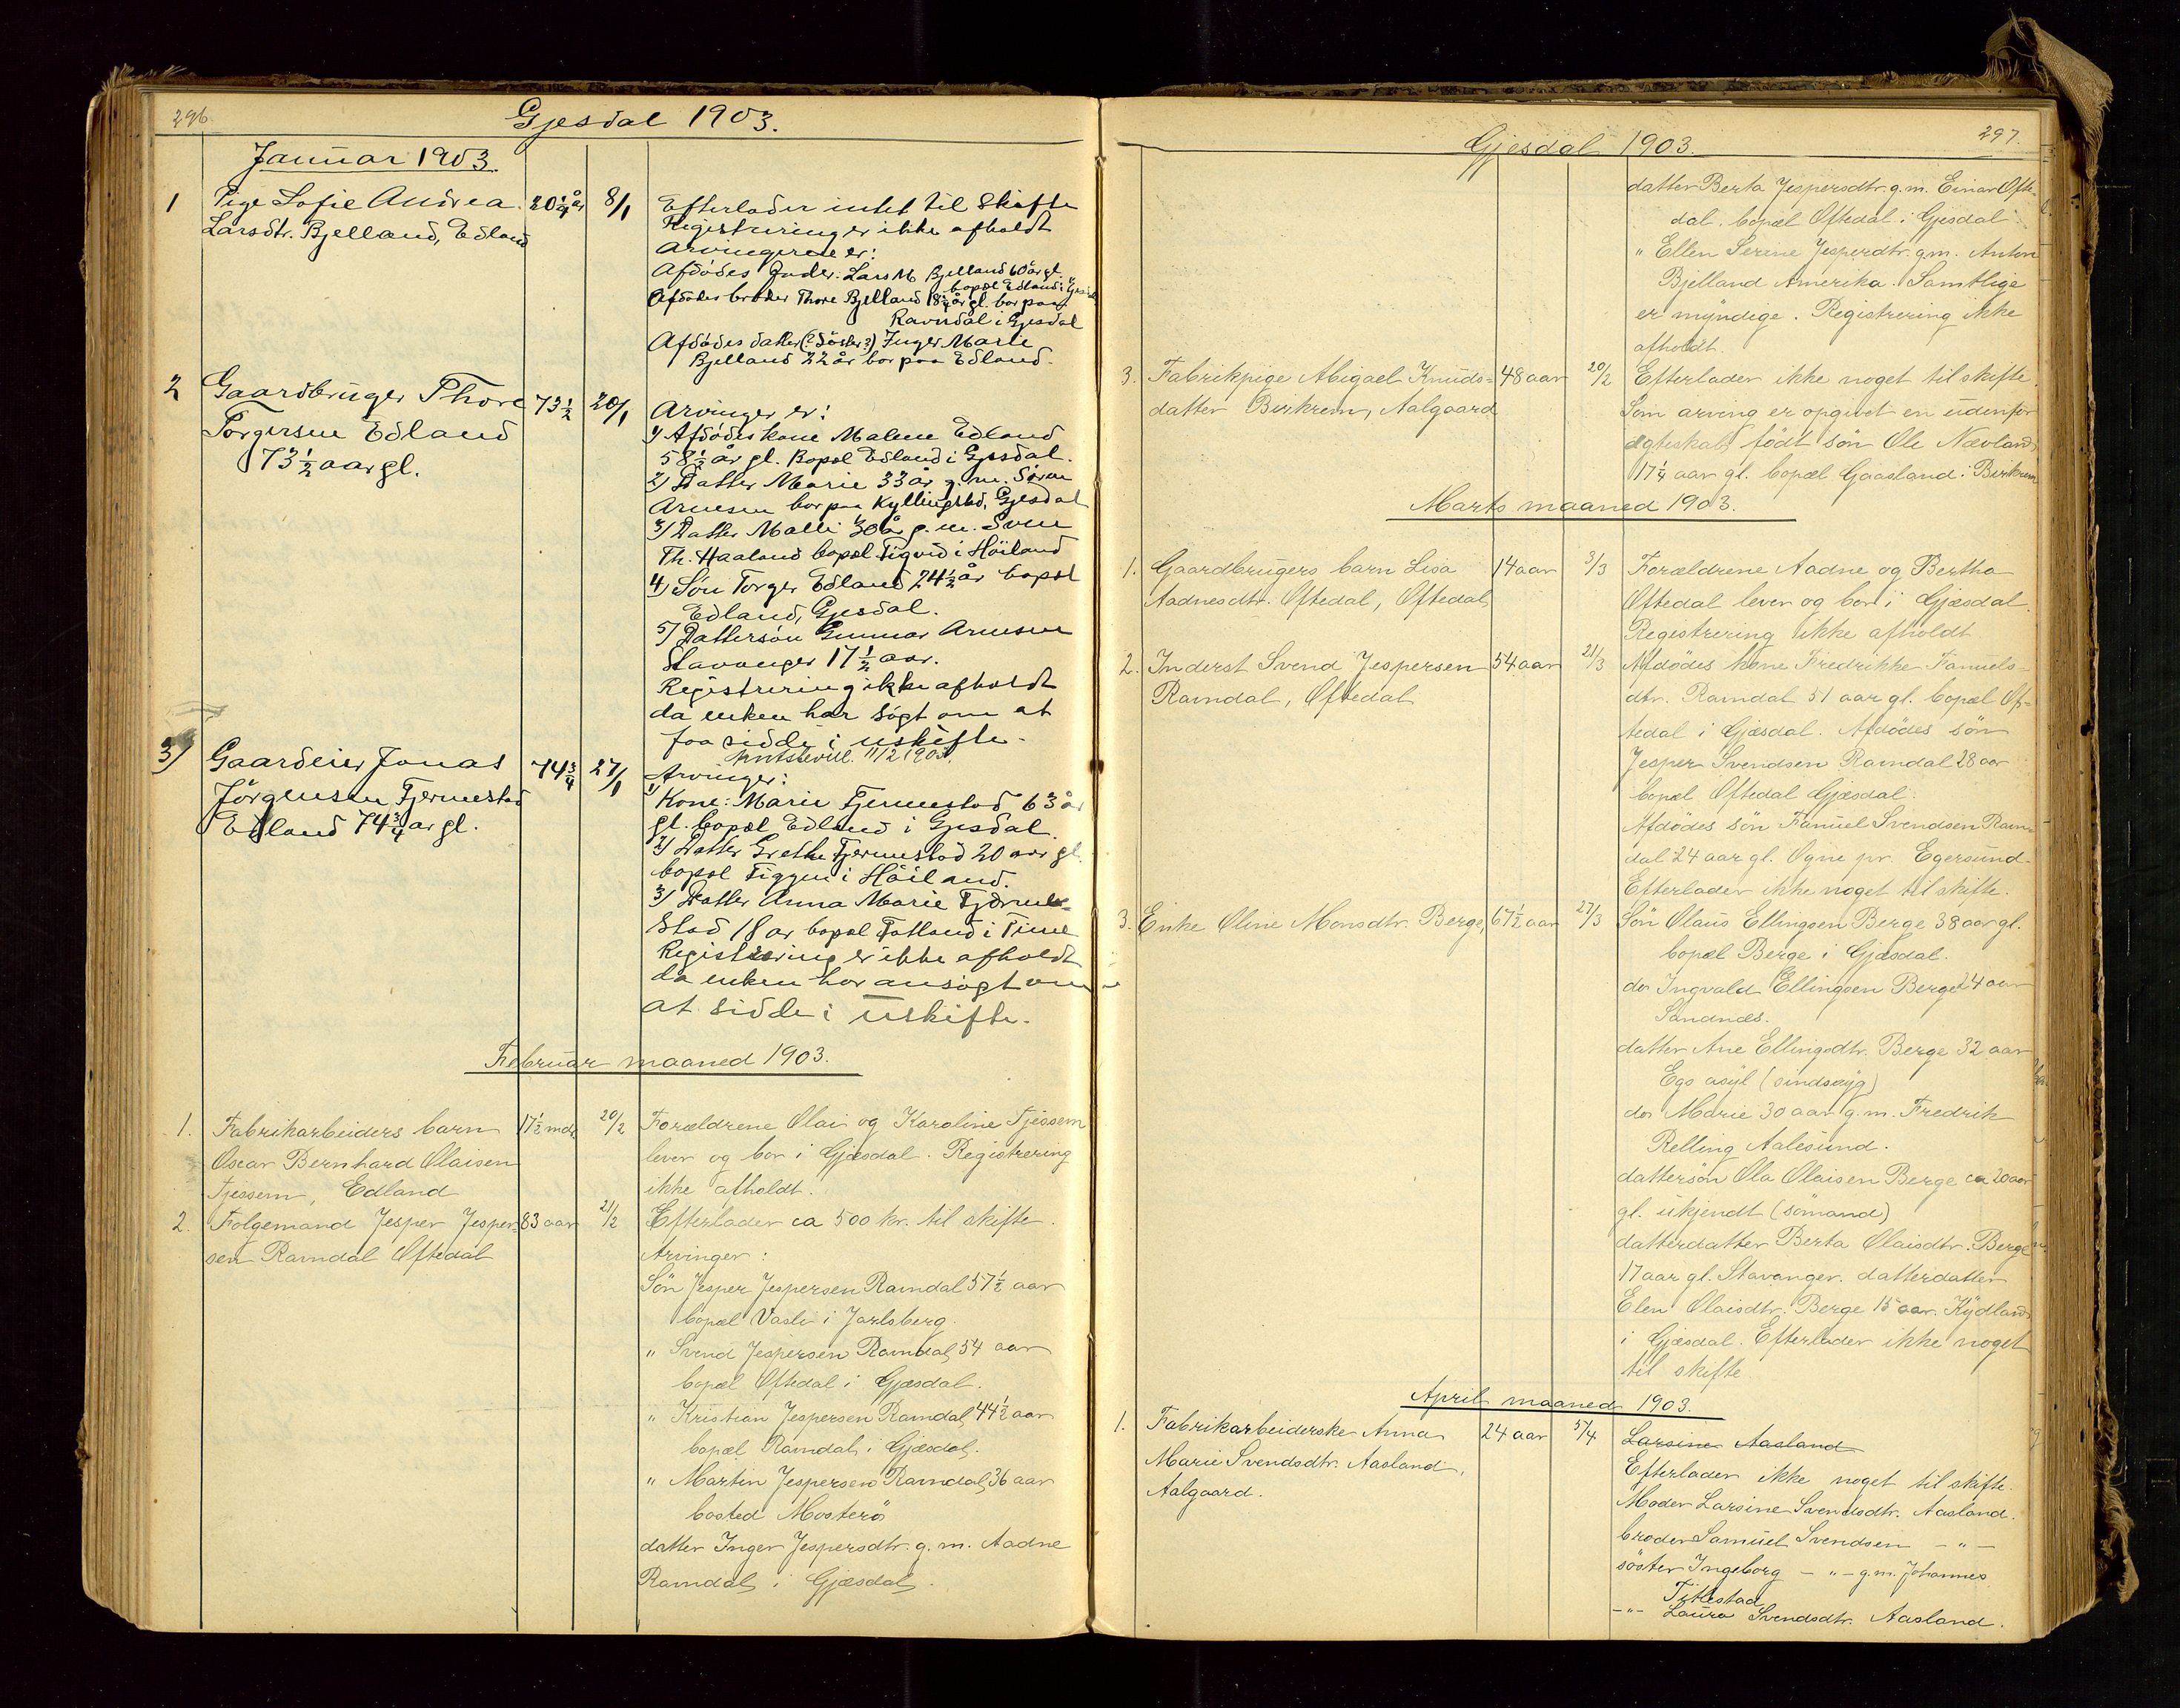 296
Gjesdal 1903.
Januar 1903.
1 Pige Sofie Andrea 20 1/4 år 8/1 Efterlader intet til Skifte
Larsdtr. Bjelland, Edland Registrering er ikke afholdt
Arvingerne er:
Afdødes Fader. Lars M Bjelland 60 år gl.
bopæl Edland i Gjesdal
Afdødes broder Thore Bjelland 18 3/4 år gl. bor paa
Ravndal i Gjesdal
Afdødes datter (? søster?) Inger Marie
Bjelland 22 år bor paa Edland.
2 Gaardbruger Thore 73 1/2 20/1 Arvinger er:
Torgersen Edland 1) Afdødes kone Malene Edland
73 1/2 aar gl. 58 1/2 år gl. Bopæl Edland i Gjesdal.
2) Datter Marie 33 år g. m. Søren
Arnesen bor paa Kyllingstad, Gjesdal
3) Datter Malli 30 år g. m. Sven
Th. Haaland bopæl Figved i Höiland
4) Søn Torger Edland 24 1/2 år bopæl
Edland, Gjesdal.
5) Dattersön Gunnar Arnesen
Stavanger 17 1/2 aar.
Registrering ikke afholdt
da enken har sögt om at
faa sidde i uskifte.
11/2 1903.
3) Gaardeier Jonas 74 3/4 27/1 Arvinger:
Jörgensen Fjermestad 1) Kone: Marie Fjermestad 63 år
Edland 74 3/4 ar gl. gl. bopæl Edland i Gjesdal.
2) Datter Grethe Fjermestad 20 aar gl.
bopæl Figgen i Höiland.
3) Datter Anna Marie Fjerme-
stad 18 ar bopæl Fotland i Time
Registrering er ikke afholdt
da enken har ansögt om
at sidde i uskifte.
Februar maaned 1903.
1. Fabrikarbeiders barn 17 1/2 mdr 20/2 Forældrene Olai og Karoline Tjessem
Oscar Bernhard Olaisen lever og bor i Gjesdal. Registrering
Tjessem, Edland ikke afholdt.
2. Folgemand Jesper Jesper- 83 aar 21/2 Efterlader ca 500 kr. til skifte.
sen Ramdal Oftedal Arvinger:
Sön Jesper Jespersen Ramdal 57 1/2 aar
bopæl Vasli i Jarlsberg.
" Svend Jespersen Ramdal 54 aar
bopæl Oftedal i Gjæsdal.
" Kristian Jespersen Ramdal 44 1/2 aar
bopæl Ramdal i Gjæsdal.
" Martin Jespersen Ramdal 36 aar
bosted Mosterö
datter Inger Jespersdtr. g. m. Aadne
Ramdal i Gjæsdal.
297.
Gjesdal 1903.
datter Berta Jespersdtr. g. m. Einar Ofte-
dal. bopæl Oftedal i Gjesdal
" Ellen Serine Jesperdtr. g.m. Anton
Bjelland Amerika. Samtlige
er myndige. Registrering ikke
afholdt.
3. Fabrikpige Abigael Knuds- 48 aar 20/2 Efterlader ikke noget til skifte.
datter Birkrem, Aalgaard Som arving er opgivet en udenfor
ægteskab født sön Ole Nævland
17 1/4 aar gl. bopæl Gaasland i Birkrem
Marts maaned 1903.
1. Gaardbrugers barn Lisa 14 aar 3/3 Forældrene Aadne og Bertha
Aadnesdtr. Oftedal, Oftedal Oftedal lever og bor i Gjæsdal.
Registrering ikke afholdt
2. Inderst Svend Jespersen 54 aar 21/3 Afdödes kone Fredrikke Fanuels-
Ramdal, Oftedal dtr. Ramdal 51 aar gl. bopæl Of-
tedal i Gjæsdal. Afdödes sön
Jesper Svendsen Ramdal 28 aar
bopæl Oftedal Gjæsdal.
Afdödes sön Fanuel Svendsen Ram-
dal 24 aar gl. Ogne pr. Egersund.
Efterlader ikke noget til skifte.
3. Enke Oline Monsdtr. Berge, 67 1/2 aar 27/3 Sön Olaus Ellingsen Berge 38 aar gl.
bopæl Berge i Gjæsdal.
do Ingvald Ellingsen Berge 24 aar
Sandnæs.
datter Ane Ellingsdtr. Berge 32 aar
Egs asyl (sindssyg)
do Marie 30 aar g. m. Fredrik
Relling Aalesund.
dattersön Ola Olaisen Berge ca 20 aar
gl. ukjendt (sömand)
datterdatter Berta Olaisdtr. Berge
17 aar gl. Stavanger. datterdatter
Elen Olaisdtr. Berge 15 aar. Kydland
i Gjæsdal. Efterlader ikke noget
til skifte.
April maaned 1903.
1. Fabrikarbeiderske Anna 24 aar 5/4 Larsine Aasland
Marie Svendsdtr. Aasland, Efterlader ikke noget til skifte.
Aalgaard. Moder Larsine Svendsdtr. Aasland.
broder Samuel Svendsen - " -
söster Ingeborg - " - g.m. Johannes
Titlestad
- " - Laura Svendsdtr. Aasland.